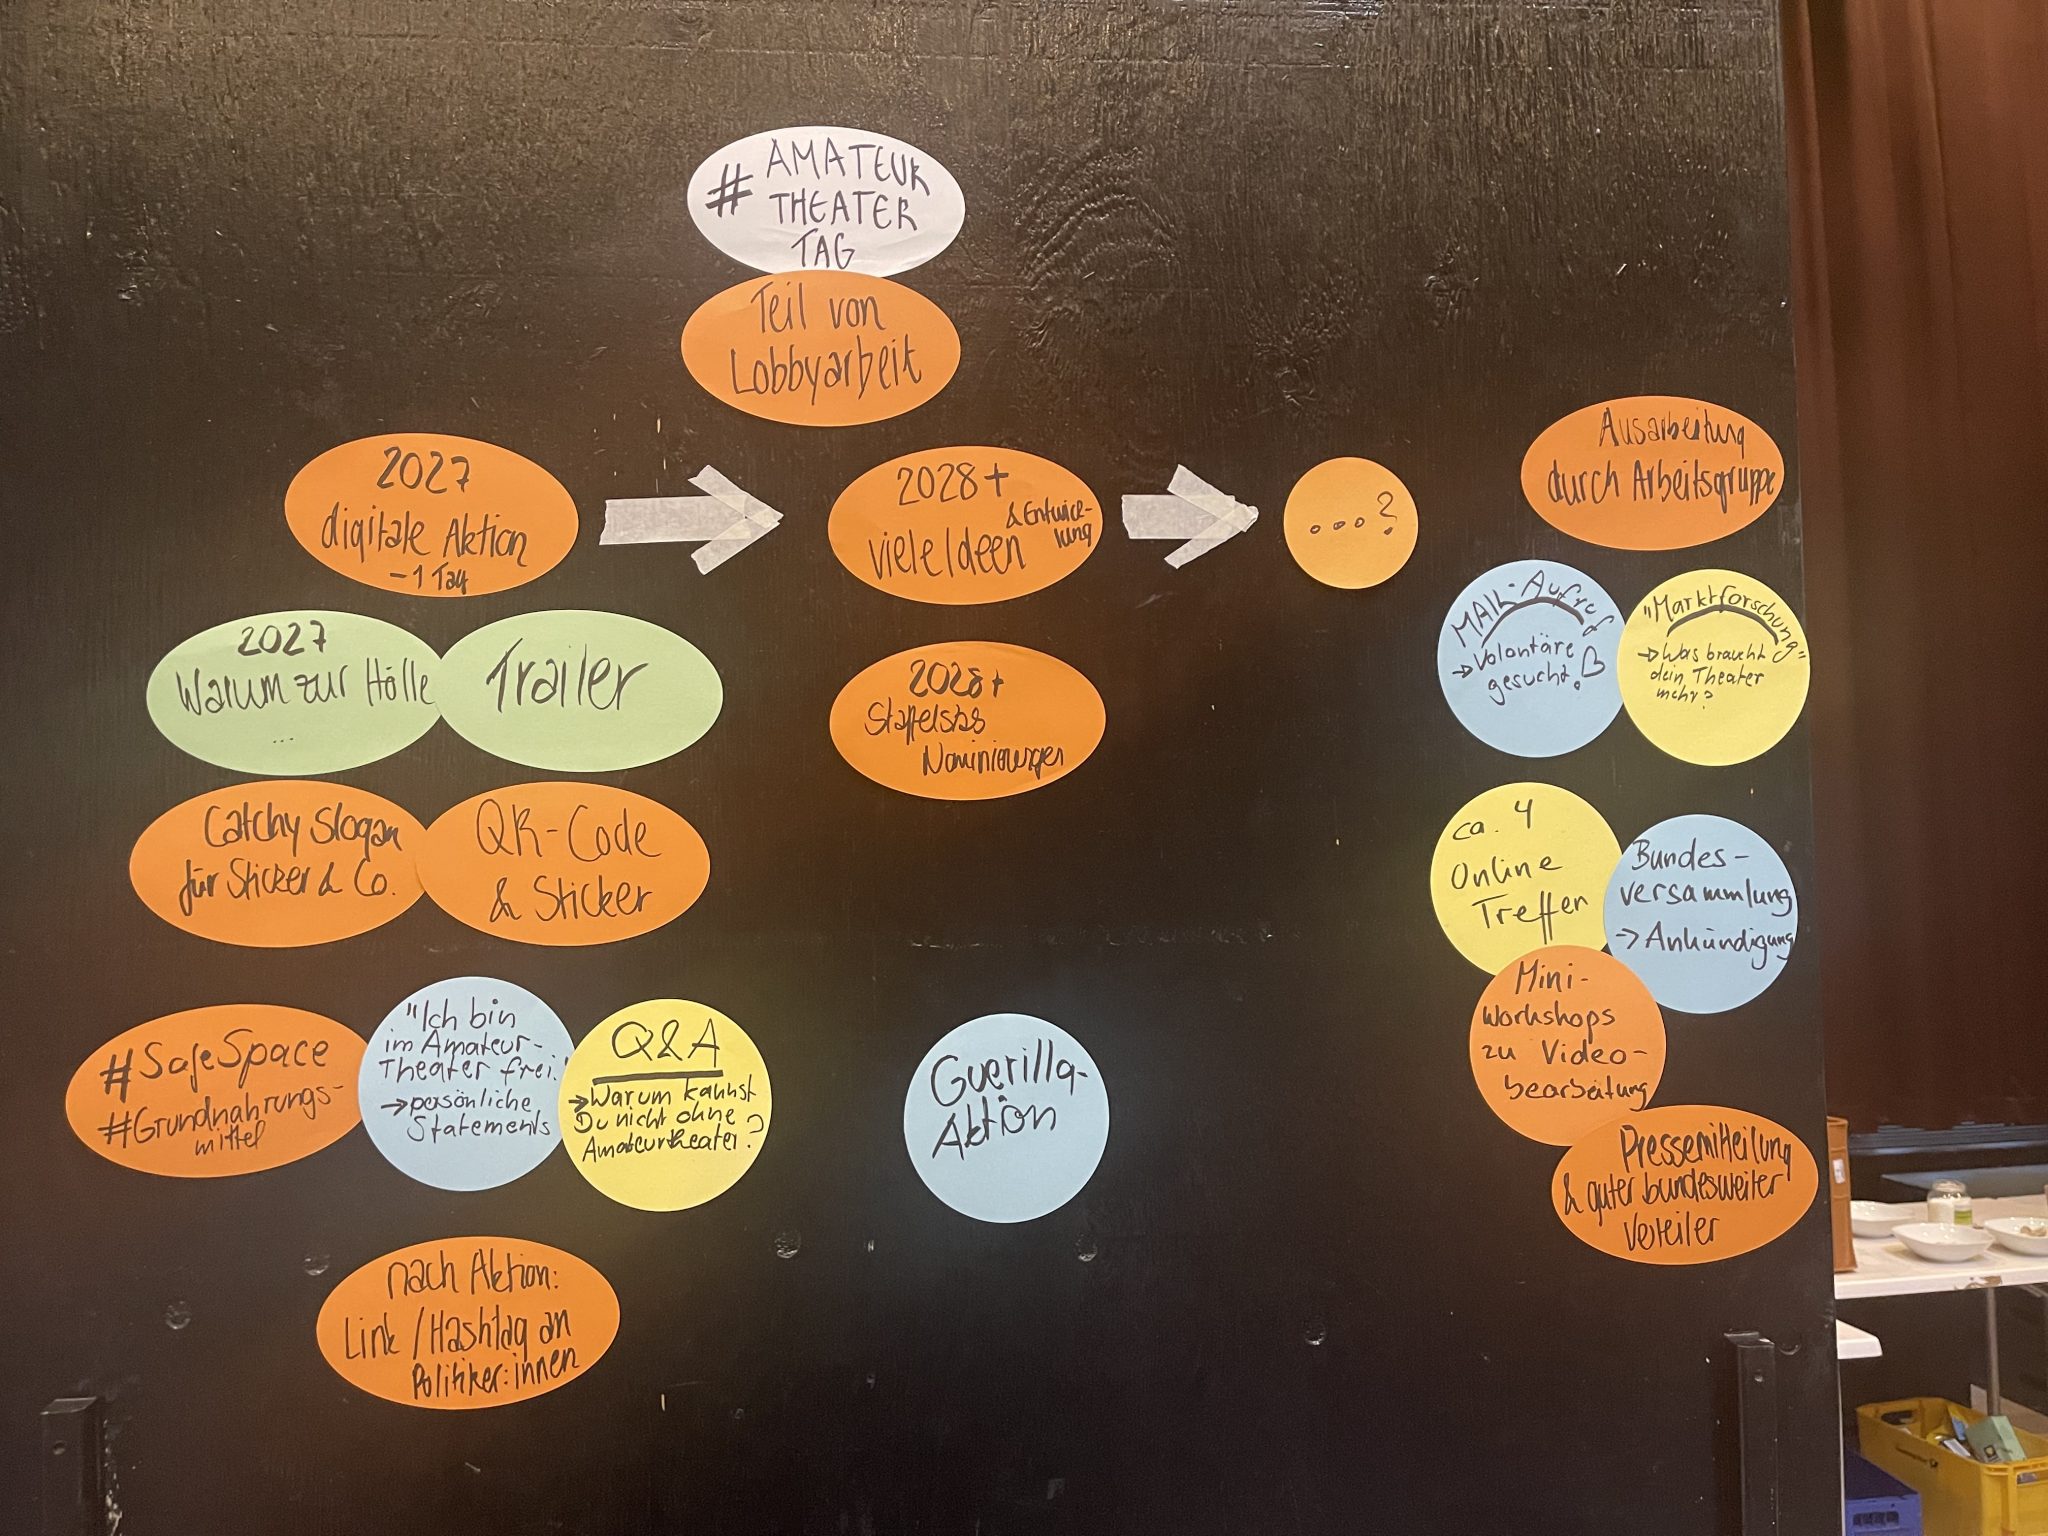 # AMATEUR
THEATER
TAG
Teil von
Lobbyarbeit
2027
digitale Aktion
- 1 Tag
2028+
& Entwick-
lung
viele Ideen
...?
Ausarbeitung
durch Arbeitsgruppe
2027
Warum zur Hölle
...
Trailer
2028+
Staffelstab
Nominierungen
MAIL-Aufruf
→ Volontäre
gesucht!
"Marktforschung"
→ Was braucht
dein Theater
mehr?
Catchy Slogan
für Sticker & Co.
QR-Code
& Sticker
ca. 4
Online
Treffen
Bundes-
versammlung
→ Ankündigung
Mini-
Workshops
zu Video-
bearbeitung
#SafeSpace
#Grundnahrungs-
mittel
"Ich bin
im Amateur-
Theater frei!
→ persönliche
Statements
Q&A
→ Warum kannst
Du nicht ohne
Amateurtheater?
Guerilla-
Aktion
Pressemitteilung
& guter bundesweiter
Verteiler
nach Aktion:
Link / Hashtag an
Politiker:innen